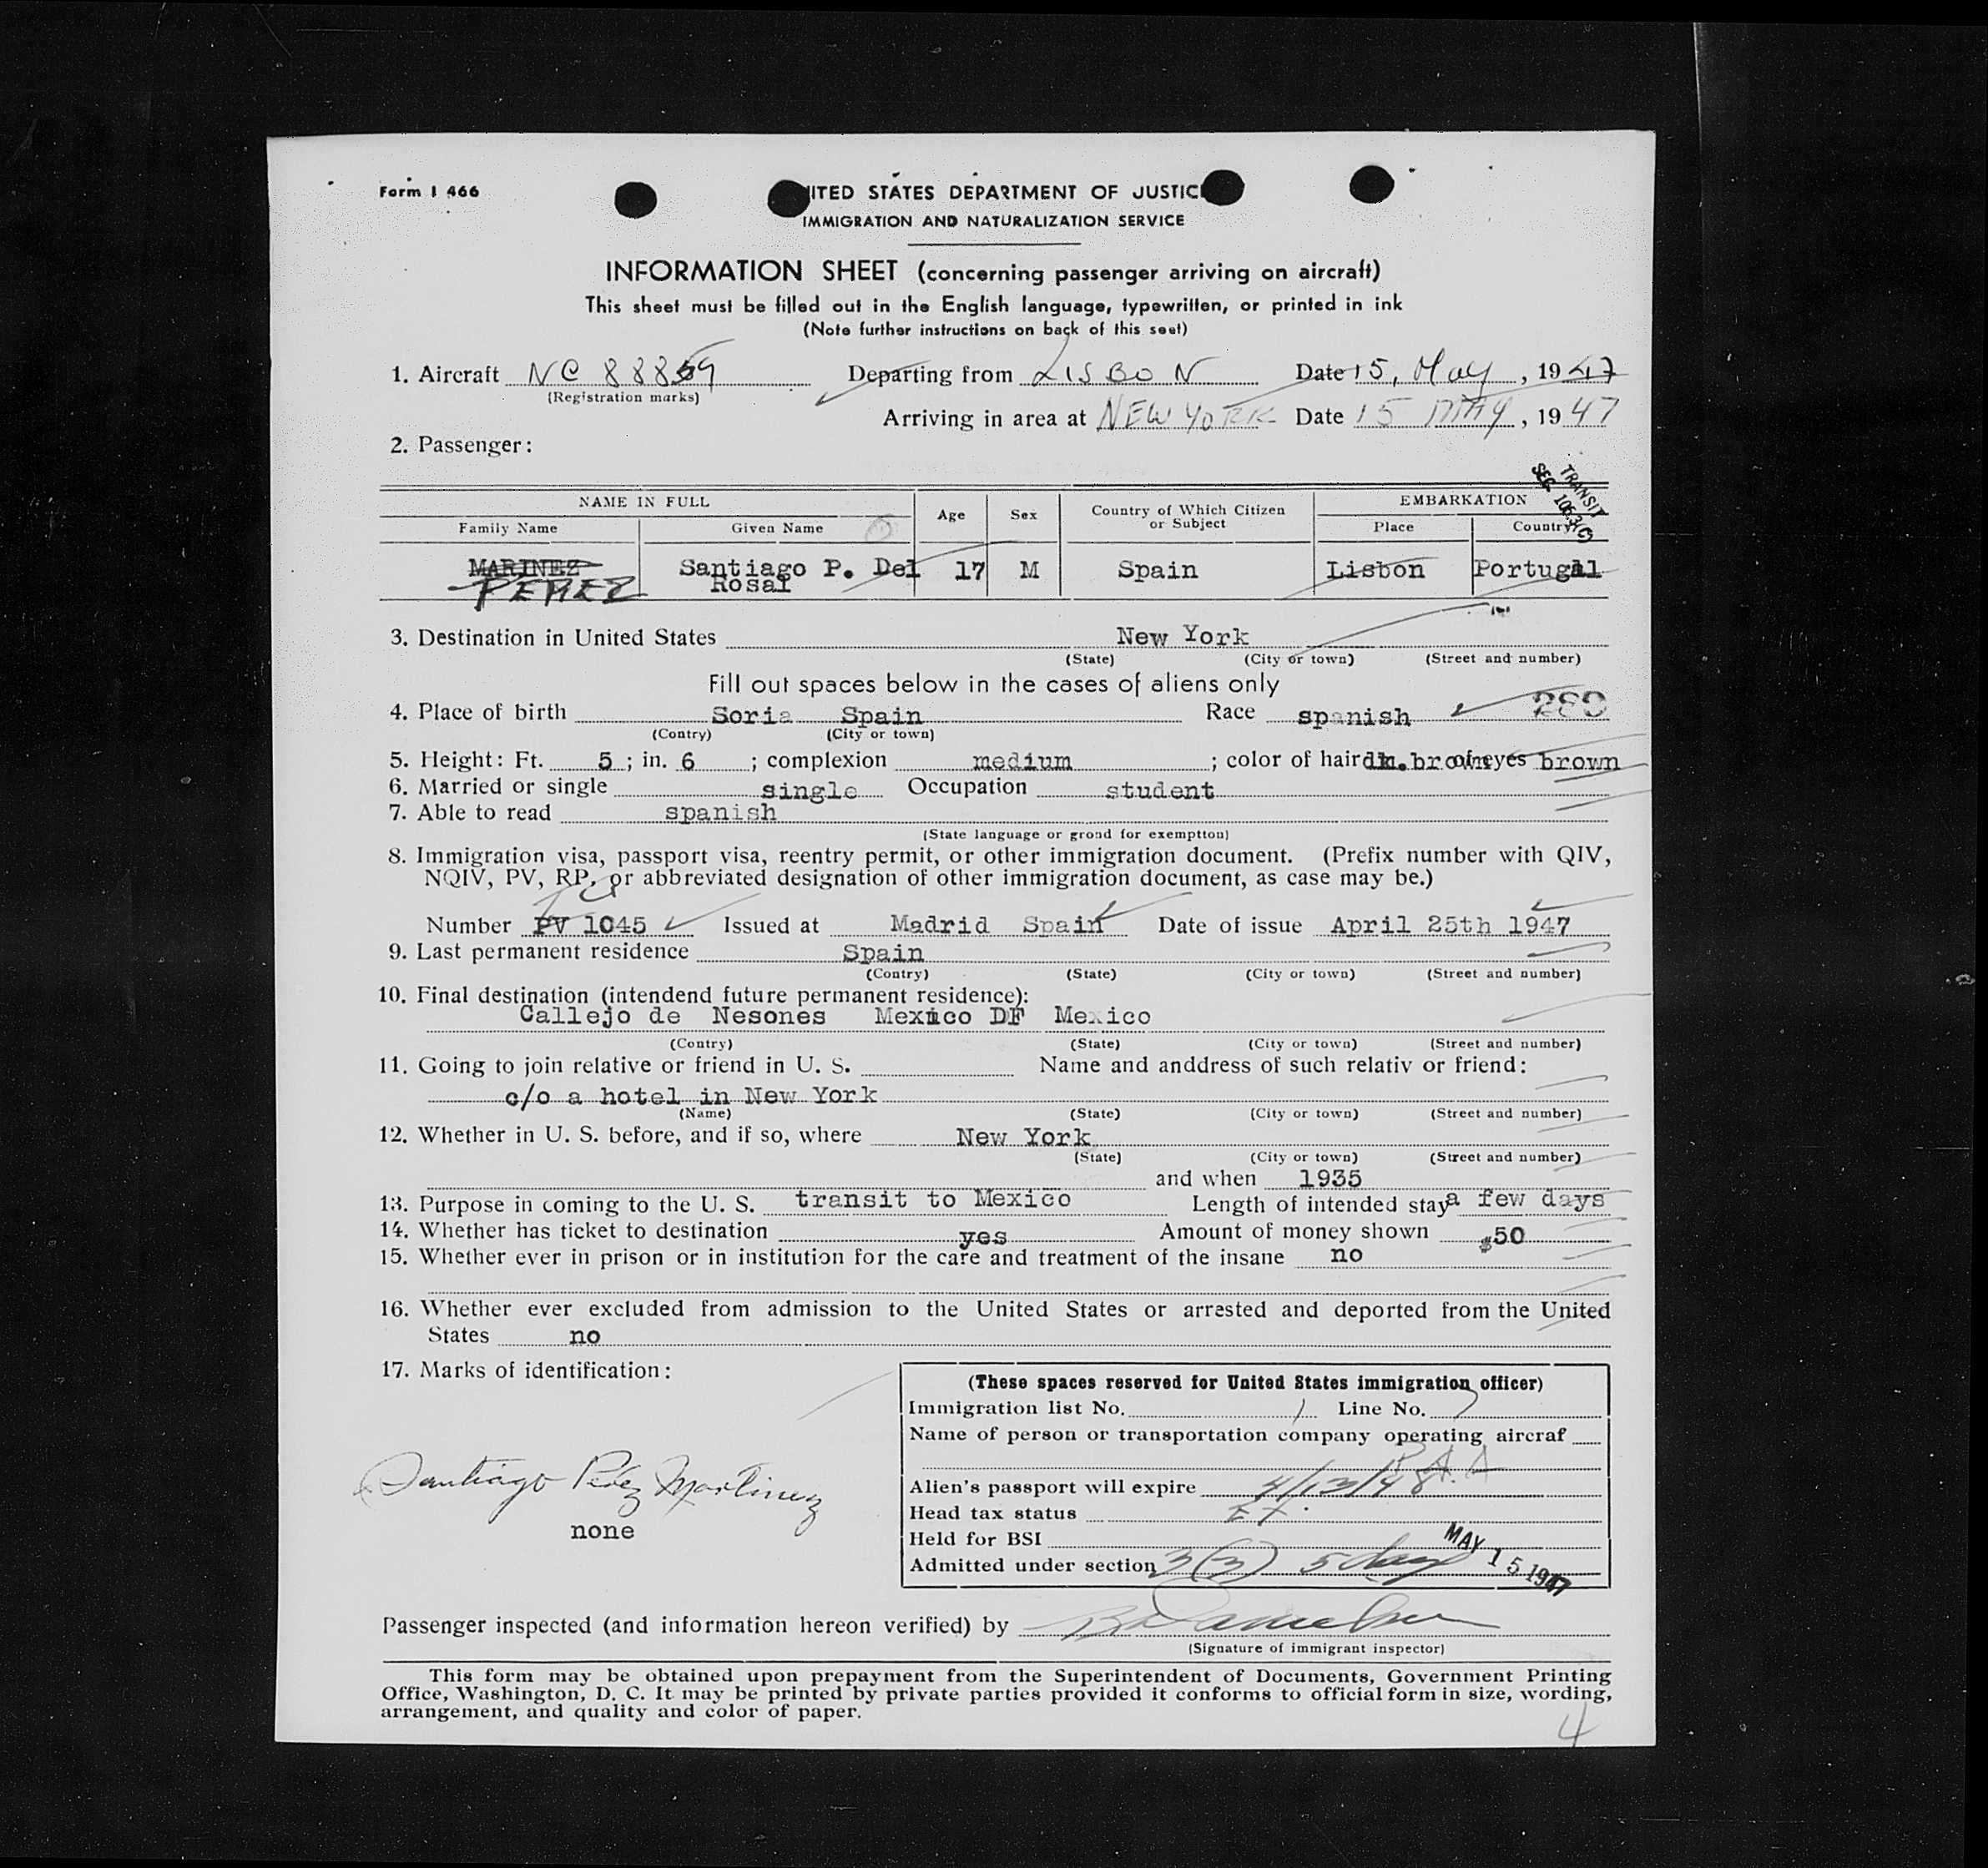 Form I 466
ITED STATES DEPARTMENT OF JUSTIC
IMMIGRATION AND NATURALIZATION SERVICE
INFORMATION SHEET (concerning passenger arriving on aircraft)
This sheet must be filled out in the English language, typewritten, or printed in ink
(Note further instructions on back of this seet)
1. Aircraft NC 88859 Departing from LISBON Date 15, May, 1947
(Registration marks)
Arriving in area at NEW YORK Date 15 MAY, 1947
2. Passenger:
TRANSIT
SEC 10633(C)
NAME IN FULL Age Sex Country of Which Citizen or Subject EMBARKATION
Family Name Given Name Place Country
MARINEZ Santiago P. Del 17 M Spain Lisbon Portugal
PEREZ Rosal
3. Destination in United States New York
(State) (City or town) (Street and number)
Fill out spaces below in the cases of aliens only
4. Place of birth Soria Spain Race spanish
(Contry) (City or town)
5. Height: Ft. 5; in. 6; complexion medium; color of hair dk. brown of eyes brown
6. Married or single single Occupation student
7. Able to read spanish
(State language or grond for exemptton)
8. Immigration visa, passport visa, reentry permit, or other immigration document. (Prefix number with QIV,
NQIV, PV, RP, or abbreviated designation of other immigration document, as case may be.)
Number PV 1045 Issued at Madrid Spain Date of issue April 25th 1947
9. Last permanent residence Spain
(Contry) (State) (City or town) (Street and number)
10. Final destination (intendend future permanent residence):
Callejo de Nesones Mexico DF Mexico
(Contry) (State) (City or town) (Street and number)
11. Going to join relative or friend in U. S. Name and anddress of such relativ or friend:
c/o a hotel in New York
(Name) (State) (City or town) (Street and number)
12. Whether in U. S. before, and if so, where New York
(State) (City or town) (Street and number)
and when 1935
13. Purpose in coming to the U. S. transit to Mexico Length of intended stay a few days
14. Whether has ticket to destination yes Amount of money shown $50
15. Whether ever in prison or in institution for the care and treatment of the insane no
16. Whether ever excluded from admission to the United States or arrested and deported from the United
States no
17. Marks of identification:
Santiago Pérez Martinez
none
(These spaces reserved for United States immigration officer)
Immigration list No. 1 Line No. 7
Name of person or transportation company operating aircraf
P.A.A
Alien's passport will expire 4/13/48
Head tax status EX.
Held for BSI
Admitted under section 3(3) 5 days
MAY 15 1947
Passenger inspected (and information hereon verified) by
(Signature of immigrant inspector)
This form may be obtained upon prepayment from the Superintendent of Documents, Government Printing
Office, Washington, D. C. It may be printed by private parties provided it conforms to official form in size, wording,
arrangement, and quality and color of paper.
4